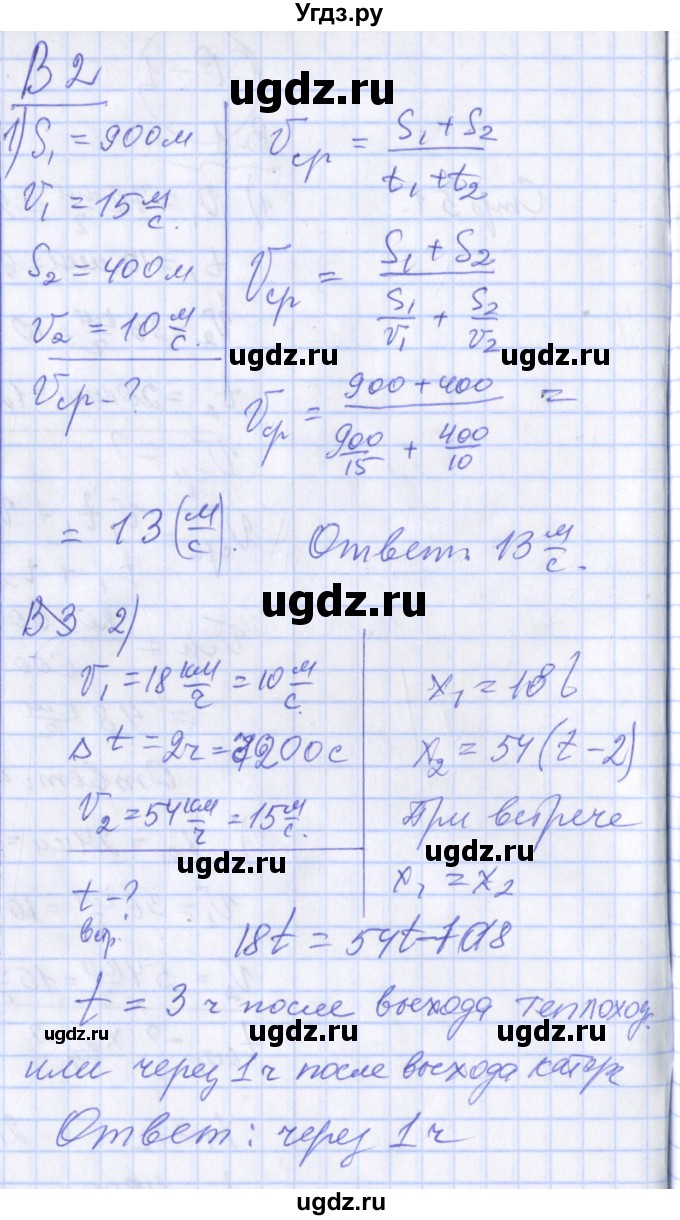 Угдз.ру
B 2
ugdz.ru
1) S₁ = 900 м
V₁ = 15 м/с.
S₂ = 400 м
V₂ = 10 м/с.
ugdz.ru
Vср - ?
Vср = (S₁ + S₂)/(t₁ + t₂)
Vср = (S₁ + S₂)/(S₁/V₁ + S₂/V₂)
ugdz.ru
Vср = (900 + 400)/(900/15 + 400/10) =
= 13 (м/с).
Ответ: 13 м/с.
ugdz.ru
ugdz.ru
В 3 2)
V₁ = 18 км/ч = 10 м/с.
Δt = 2ч = 7200 с
V₂ = 54 км/ч = 15 м/с.
ugdz.ru
ugdz.ru
t - ?
встр.
x₁ = 18t
x₂ = 54(t - 2)
При встрече
x₁ = x₂
18t = 54t - 108
t = 3 ч после выхода теплоход.
ugdz.ru
ugdz.ru
или через 1 ч после выхода катера
Ответ: через 1 ч
ugdz.ru